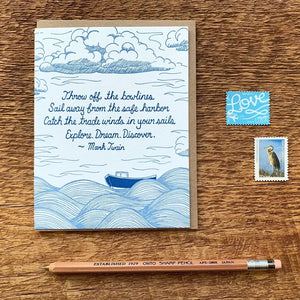 Throw off the bowlines.
Sail away from the safe harbor.
Catch the trade winds in your sails.
Explore. Dream. Discover.
~ Mark Twain
Love
ESTABLISHED 1929 OHTO SHARP PENCIL APS-280E JAPAN